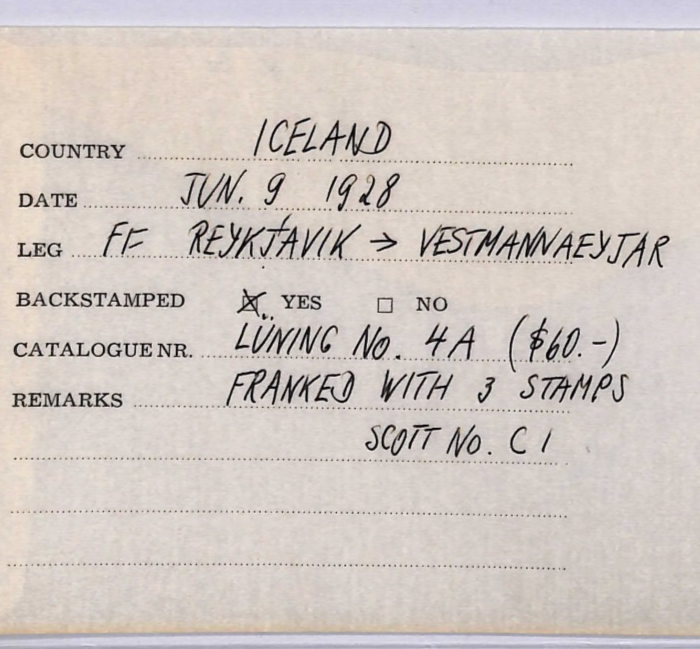 COUNTRY ICELAND
DATE JUN. 9 1928
LEG FF REYKJAVIK → VESTMANNAEYJAR
BACKSTAMPED ☒ YES ☐ NO
CATALOGUE NR. LÜNING No. 4A ($60.-)
REMARKS FRANKED WITH 3 STAMPS
SCOTT No. C 1